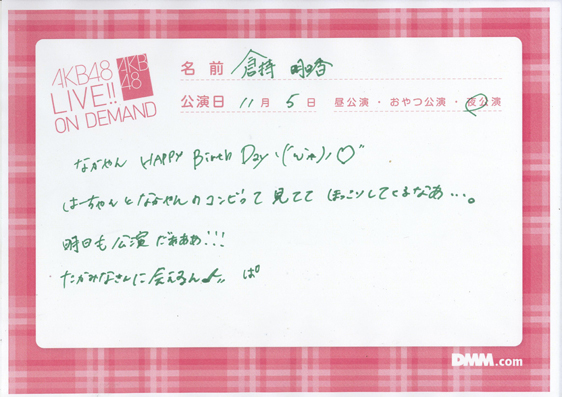 AKB48
LIVE!!
ON DEMAND
AKB
48
名前 倉持 明日香
公演日 11月 5日 昼公演・おやつ公演・夜公演
なかやん HAPPY Birth Day ヽ(
はーちゃんとなかやんのコンビって見てて ほっこりしてくるなあ…。
明日も公演だぁああ!!!
たかみなさんに会えるん♪ ぱ
DMM.com